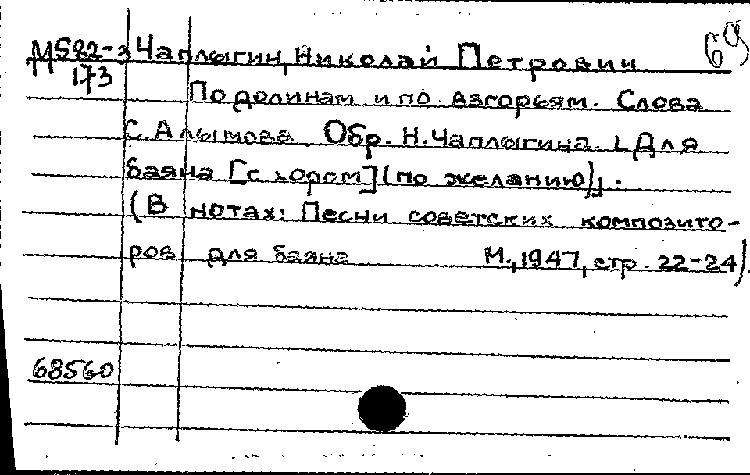 М582-3 Чаплыгин, Николай Петрович 69
173
По долинам и по взгорьям. Слова
С. Алымова. Обр. Н. Чаплыгина. [Для
баяна [с хором] (по желанию)].
(В нотах: Песни советских композито-
ров для баяна М., 1947, стр. 22-24).
68560